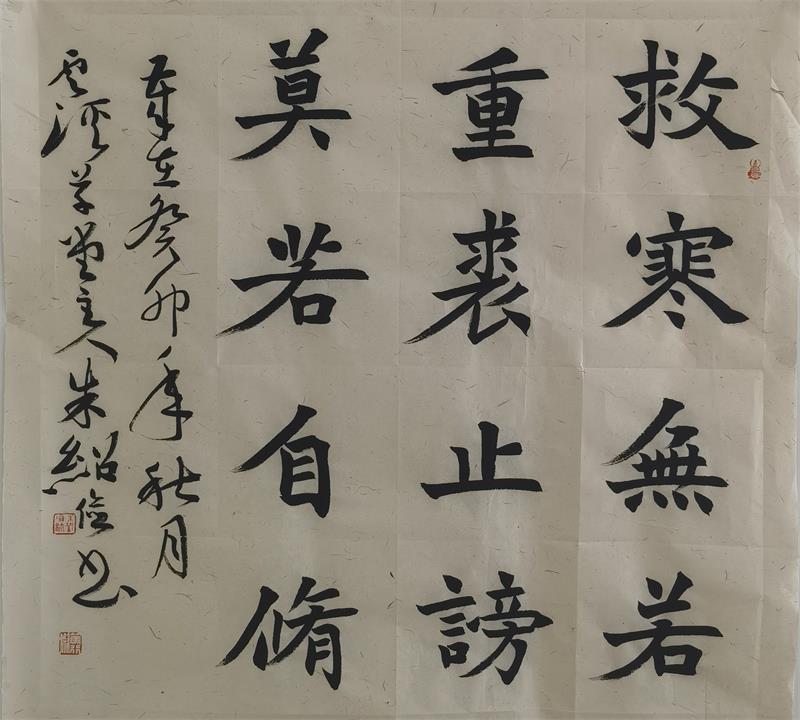 救寒無若
重裘止謗
莫若自脩
歲在癸卯年秋月
雲溪草堂主人朱紹儉書